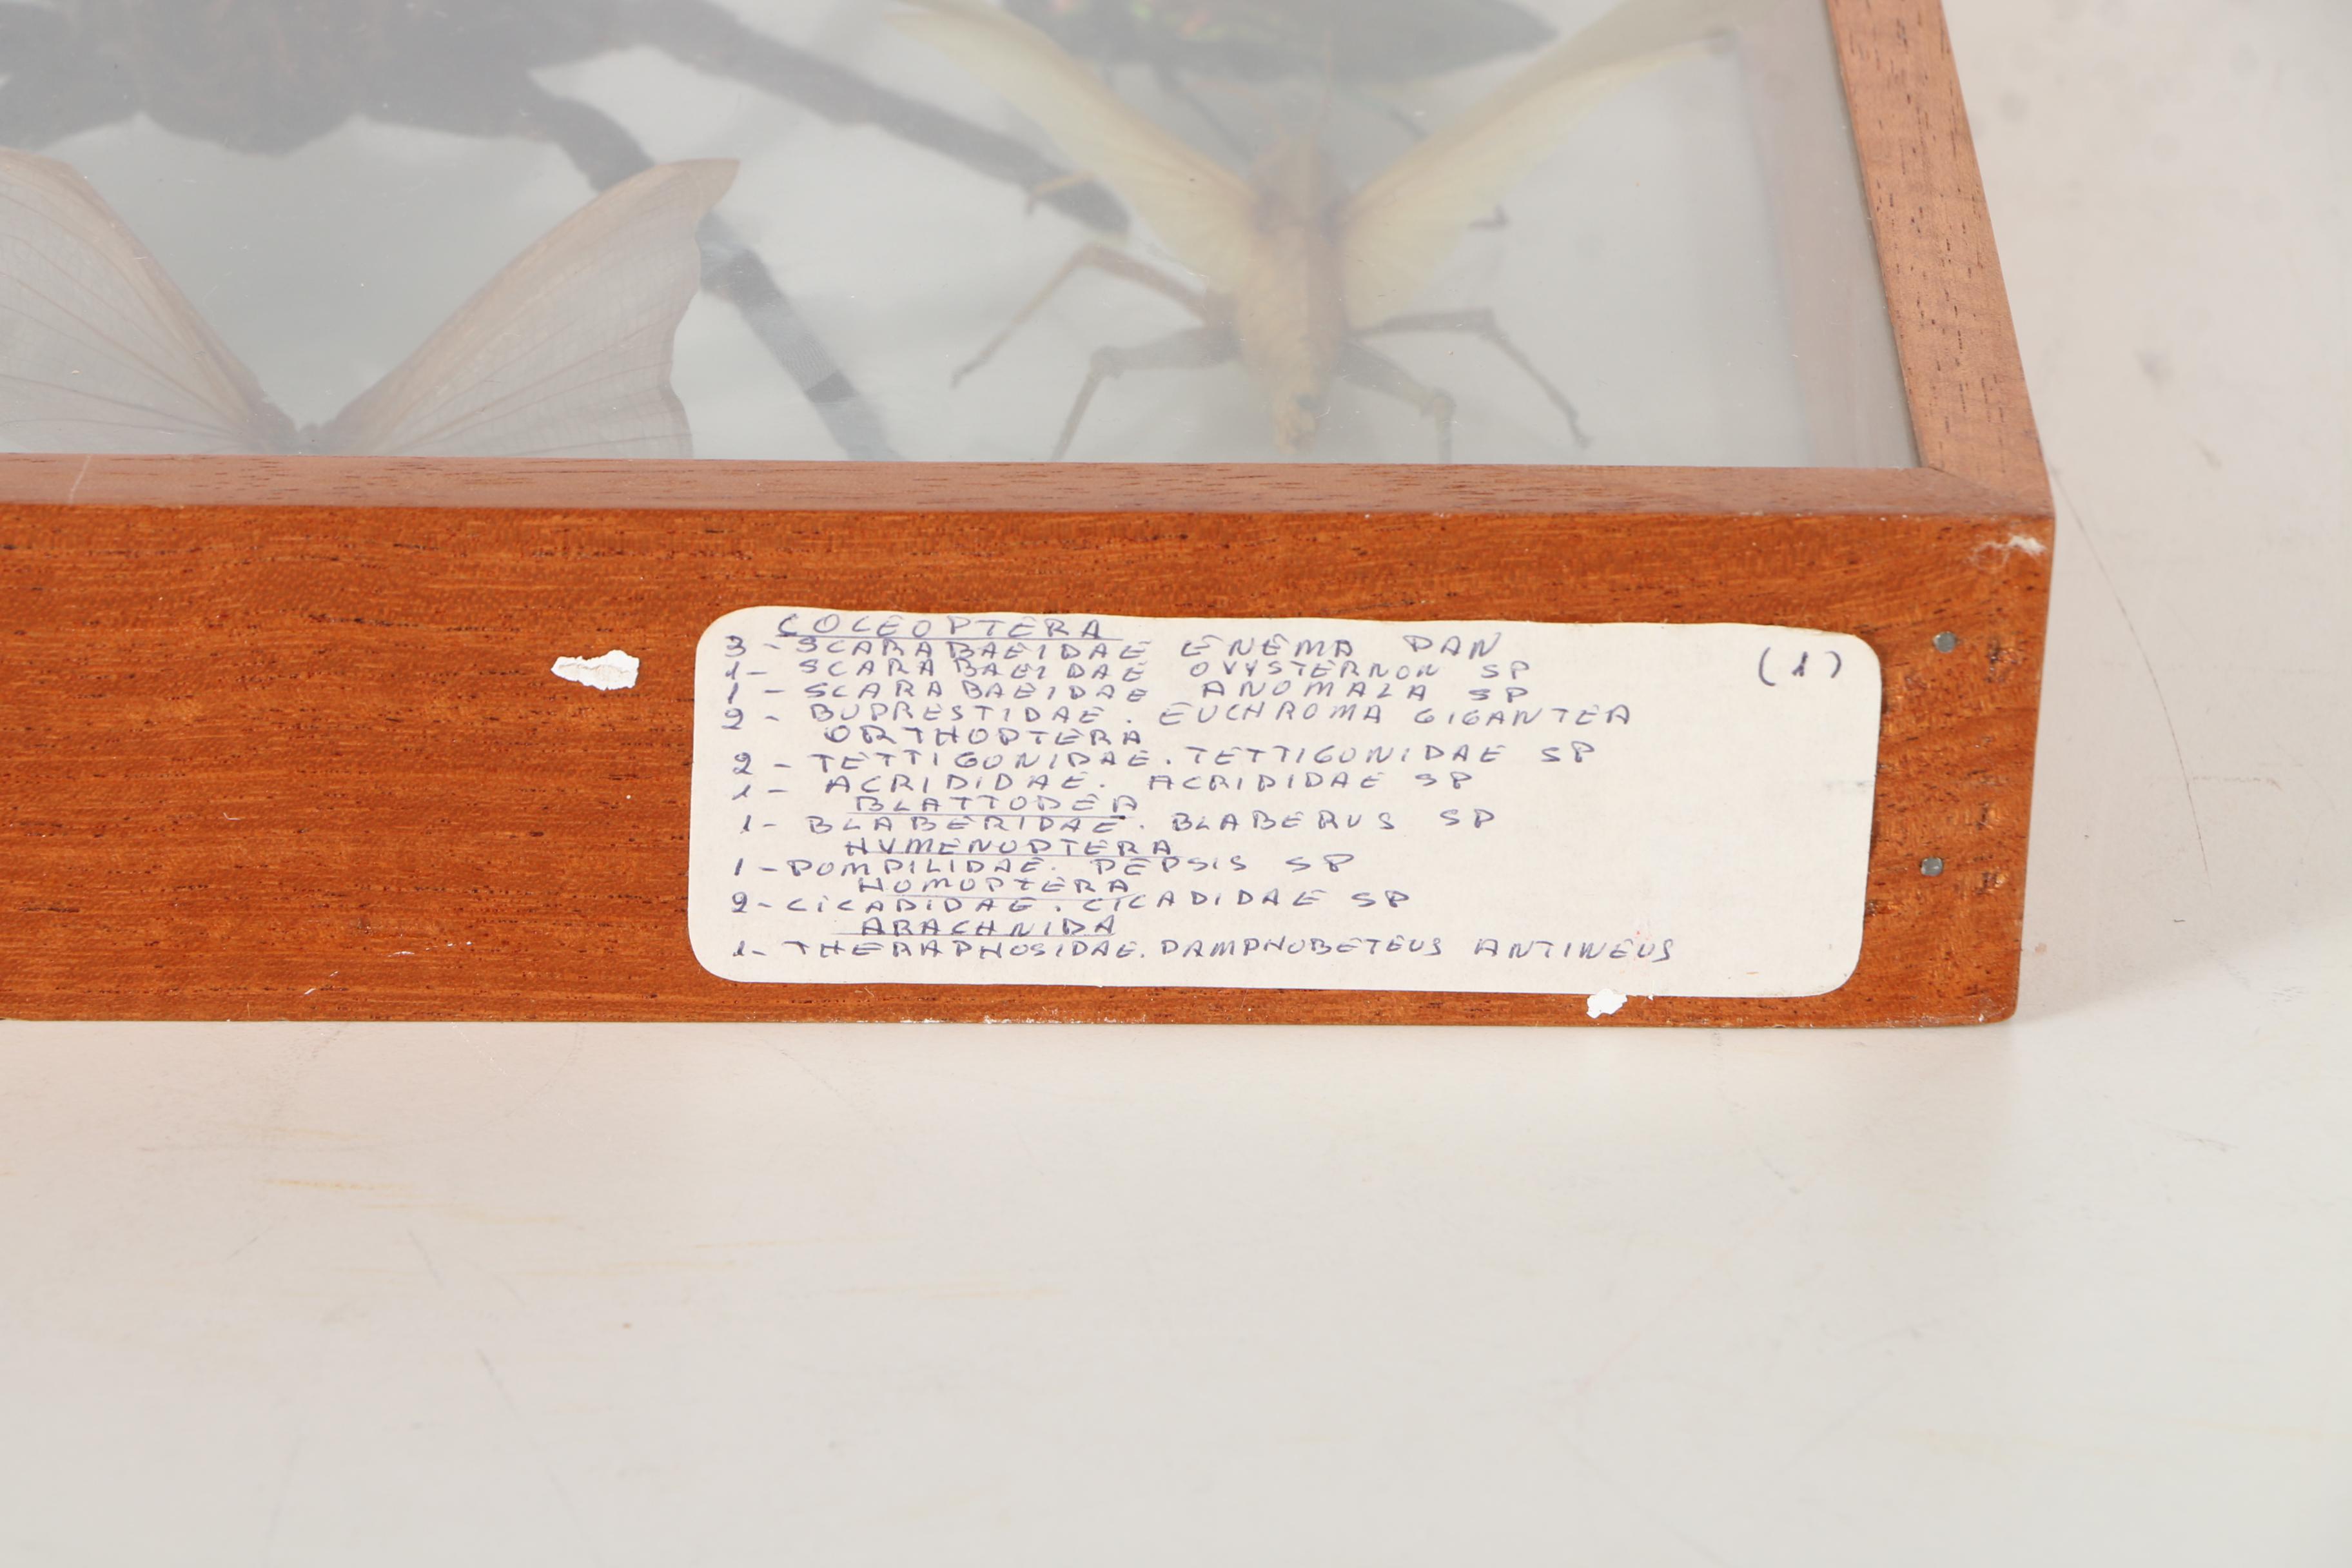 COLEOPTERA
3 - SCARABAEIDAE ENEMA PAN (1)
1 - SCARABAEIDAE OXYSTERNON SP
1 - SCARABAEIDAE ANOMALA SP
2 - BUPRESTIDAE. EUCHROMA GIGANTEA
ORTHOPTERA
2 - TETTIGONIDAE. TETTIGONIDAE SP
1 - ACRIDIDAE. ACRIDIDAE SP
BLATTODEA
1 - BLABERIDAE. BLABERUS SP
HYMENOPTERA
1 - POMPILIDAE. PEPSIS SP
HOMOPTERA
2 - CICADIDAE. CICADIDAE SP
ARACHNIDA
1 - THERAPHOSIDAE. PAMPHOBETEUS ANTINEUS